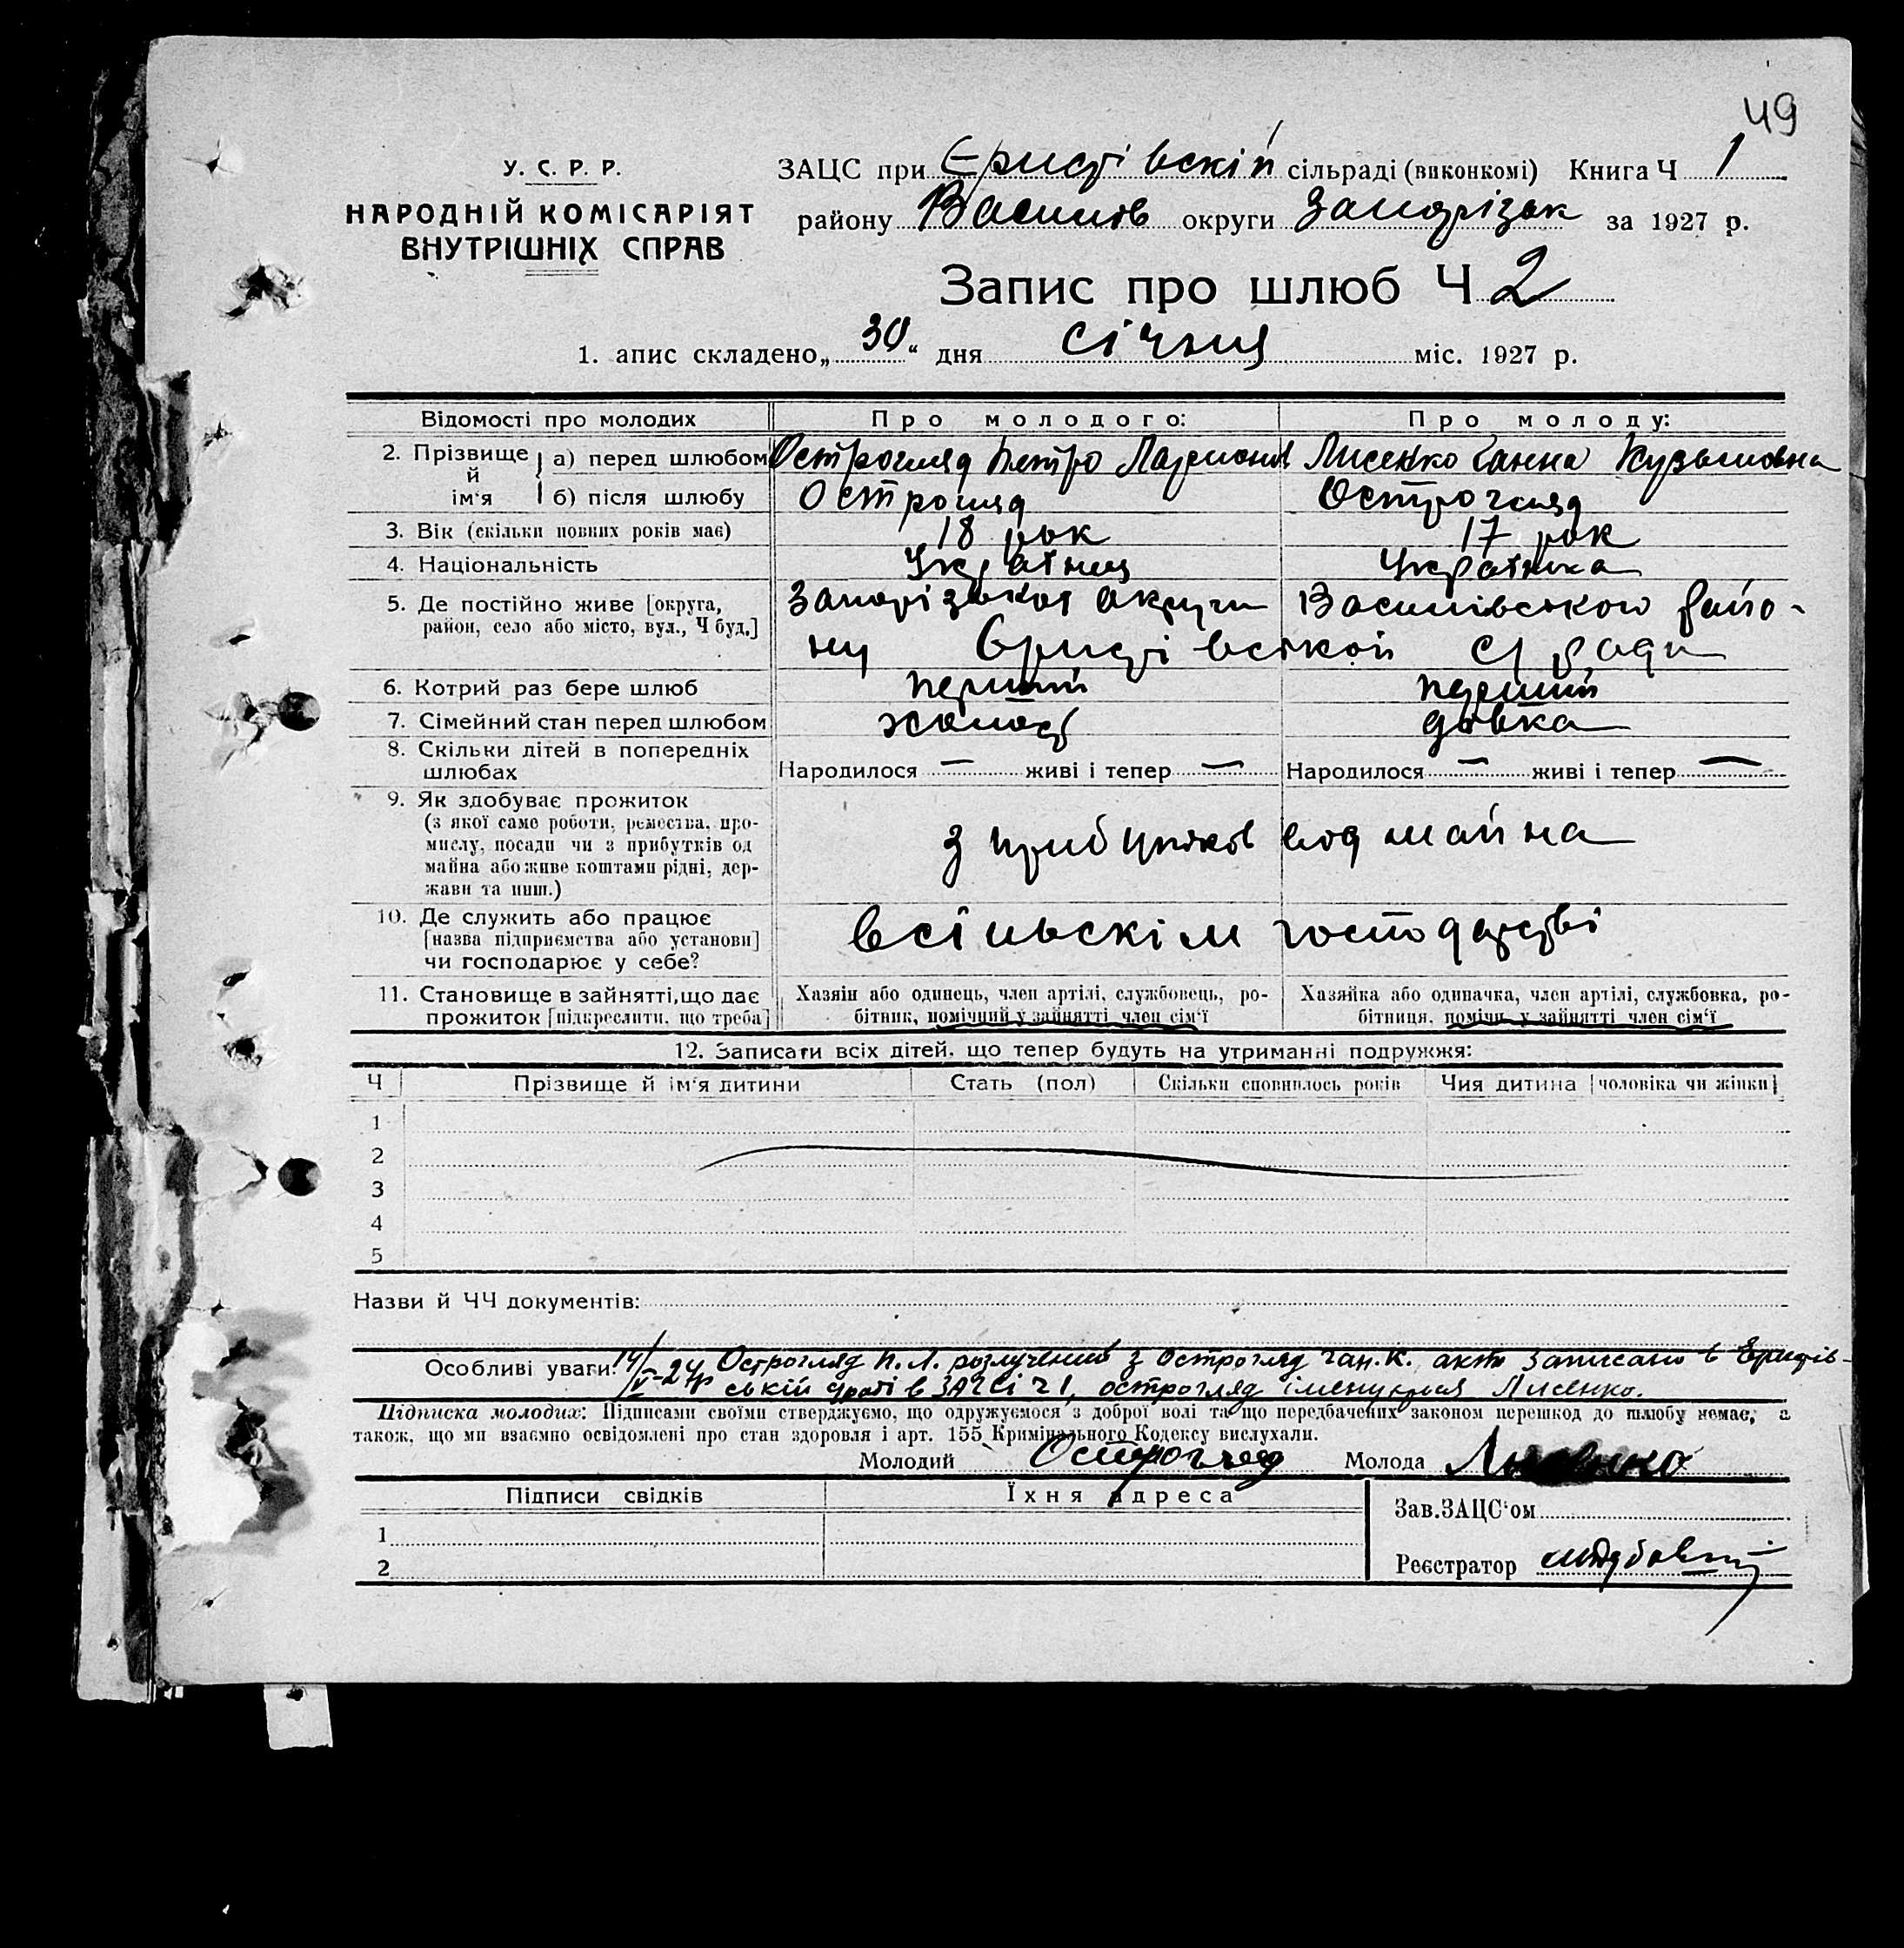 49
У. С. Р. Р.
НАРОДНІЙ КОМІСАРІЯТ
ВНУТРІШНІХ СПРАВ
ЗАЦС при Єристівскій сільраді (виконкомі) Книга Ч 1
району Василів округи Запорізьк за 1927 р.
Запис про шлюб Ч 2
1. апис складено „ 30 “ дня січня міс. 1927 р.
Відомості про молодих Про молодого: Про молоду:
2. Прізвище й ім‘я а) перед шлюбом Острогляд Петро Ларионів Лисенко Ганна Кузьмовна
б) після шлюбу Острогляд Острогляд
3. Вік (скільки повних років має) 18 рок 17 рок
4. Національність Українец Українка
5. Де постійно живе [округа, Запорізькоі округи Василівського райо-
район, село або місто, вул., Ч буд.]
ну Єристівскоі с/ ради
6. Котрий раз бере шлюб перший перший
7. Сімейний стан перед шлюбом холост дівка
8. Скільки дітей в попередніх
шлюбах Народилося — живі і тепер — Народилося — живі і тепер —
9. Як здобуває прожиток
(з якої саме роботи, ремества, про-
мислу, посади чи з прибутків од з прибутків від майна
майна або живе коштами рідні, дер-
жави та инш.)
10. Де служить або працює
[назва підприємства або установи] всільскім господарстві
чи господарює у себе?
11. Становище в зайнятті, що дає Хазяїн або одинець, член артілі, службовець, ро- Хазяйка або одиначка, член артілі, службовка, ро-
прожиток [підкреслити, що треба] бітник, помічний у зайнятті член сім‘ї бітниця, помічн. у зайнятті член сім‘ї
12. Записати всіх дітей, що тепер будуть на утриманні подружжя:
Ч Прізвище й ім‘я дитини Стать (пол) Скільки сповнилось років Чия дитина [чоловіка чи жінки]
1
2
3
4
5
Назви й ЧЧ документів:
Особливі уваги: Острогляд П. Л. розлучений з Острогляд Ган. К. акт записано в Єристів-
ській с/раді в ЗАГСі Ч 1, остроглядіменується Лисенко.
Підписка молодих: Підписами своїми стверджуємо, що одружуємося з доброї волі та що передбачених законом перешкод до шлюбу немає, а
також, що ми взаємно освідомлені про стан здоровля і арт. 155 Кримінального Кодексу вислухали.
Молодий Остроглод Молода Лисенко
Підписи свідків Їхня адреса
Зав.ЗАЦС‘ом
1
2
Реєстратор